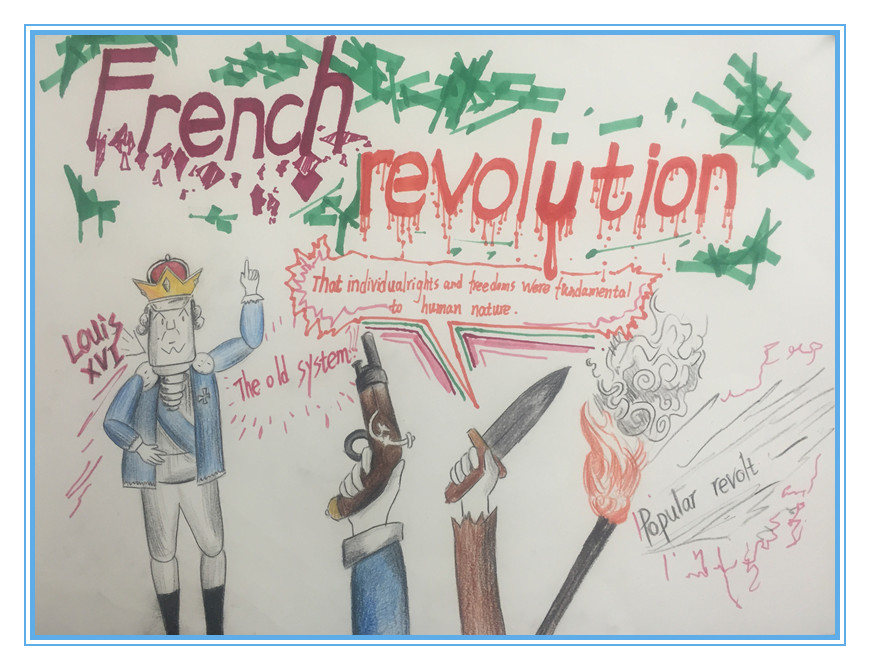 French
revolution
That individual rights and freedoms were fundamental
to human nature.
Louis
XVI
The old system!!!
Popular revolt